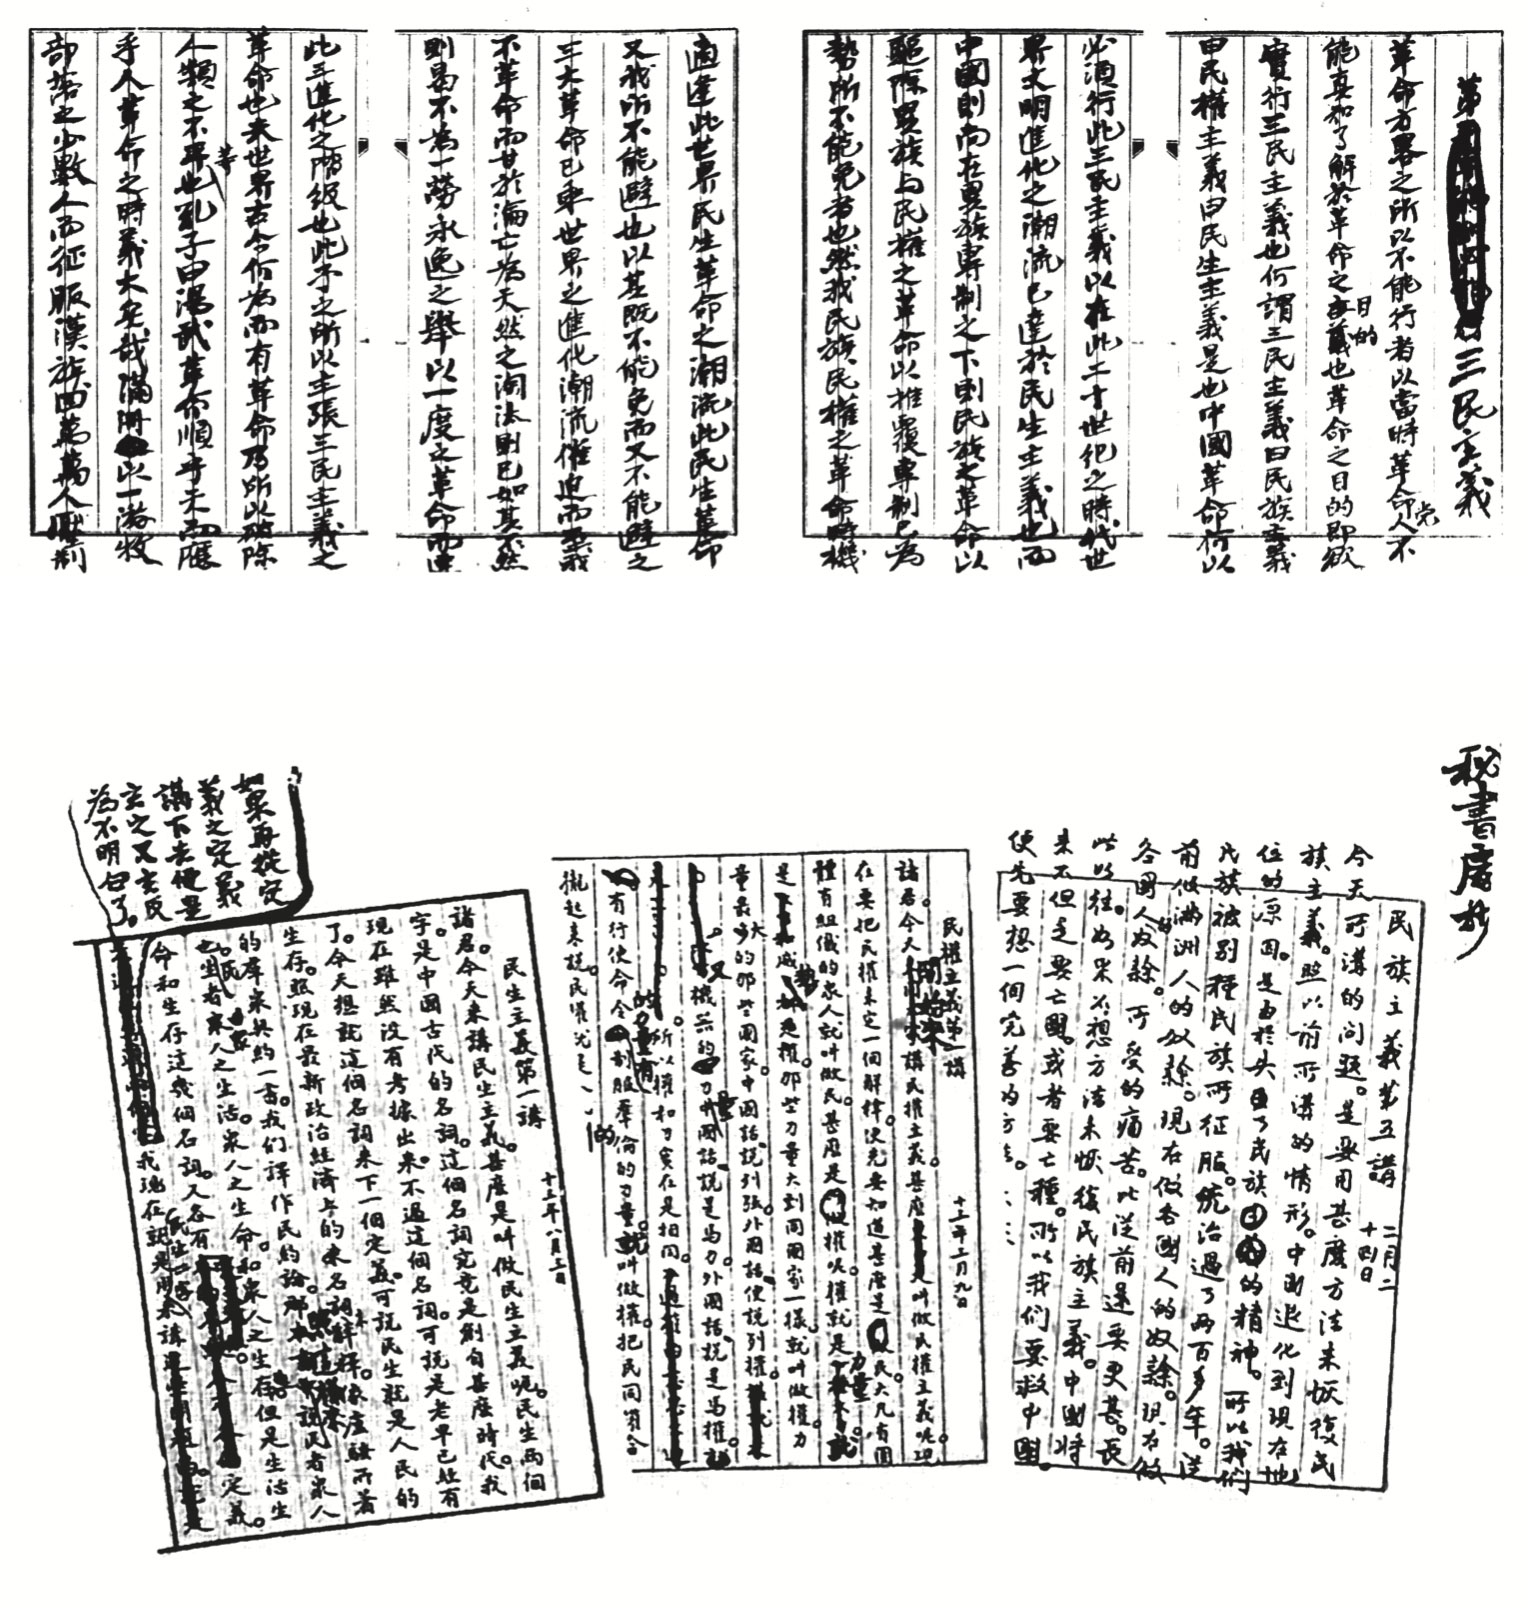 第三民主義
革命方畧之所以不能行者以當時革命黨人不
能真知了解於革命之目的也革命之目的即欲
實行三民主義也何謂三民主義曰民族主義
曰民權主義曰民生主義是也中國革命何以
必須行此三民主義以在此二十世紀之時代世
界文明進化之潮流已達於民生主義也而
中國則尚在異族專制之下則民族之革命以
驅除異族與民權之革命以推覆專制已為
勢所不能免者也然我民族民權之革命時機
適逢此世界民生革命之潮流此民生革命
又我所不能避也以其既不能免而又不能避之
三大革命已乘世界之進化潮流催迫而至我
不革命而甘於淪亡為天然之淘汰則已如其不然
則曷不為一勞永逸之舉以一度之革命而達
此三進化之階級也此予之所以主張三民主義之
革命也夫世界古今何為而有革命乃所以破除
人類之不平等也孔子曰湯武革命順乎天而應
乎人革命之時義大矣哉滿洲以一游牧
部落之少數人而征服漢族四萬萬人壓制
秘書處抄
民族主義第五講 二月二十四日
今天所講的問題。是要用甚麼方法來恢復民
族主義。照以前所講的情形。中國退化到現在地
位的原因。是由於失了民族的精神。所以我們
民族被別種民族所征服。統治過了兩百多年。從
前做滿洲人的奴隸。現在做各國人的奴隸。現在做
各國人奴隸。所受的痛苦。比從前還要更甚。長
此以往。如果不想方法來恢復民族主義。中國將
來不但是要亡國。或者要亡種。所以我們要救中國。
便先要想一個完善的方法。
民權主義第一講
十三年三月九日
諸君。今天開始來講民權主義。甚麼是叫做民權主義呢現
在要把民權來定一個解釋。便先要知道甚麼是民。大凡有團
體有組織的眾人就叫做民。甚麼是權呢。權就是力量。
那些力量大到同國家一樣。就叫做權。力
量最大的那些國家。中國話說列強外國話便說列權。
又機器的力量中國話說是馬力。外國話說是馬權
所以權和力實在是相同。
有行使命令的力量。有制服群倫的力量。就叫做權。把民同權合
攏起來說。民權就是
民生主義第一講
十三年八月三日
諸君。今天來講民生主義。甚麼是叫做民生主義呢。民生兩個
字。是中國古代的名詞。這個名詞究竟是創自甚麼時代。我
現在雖然沒有考據出來。不過這個名詞。可說是老早已經有
了。今天想就這個名詞來下一個定義。可說民生就是人民的
生存。
的群眾契約一書。我們譯作民約論
也。生者眾人之生活。眾人之生命。和眾人之生存。但是生活生
命和生存這幾個名詞。又各有定義。
如果再從定
義之定義
講下去便是
玄之又玄反
為不明白了。